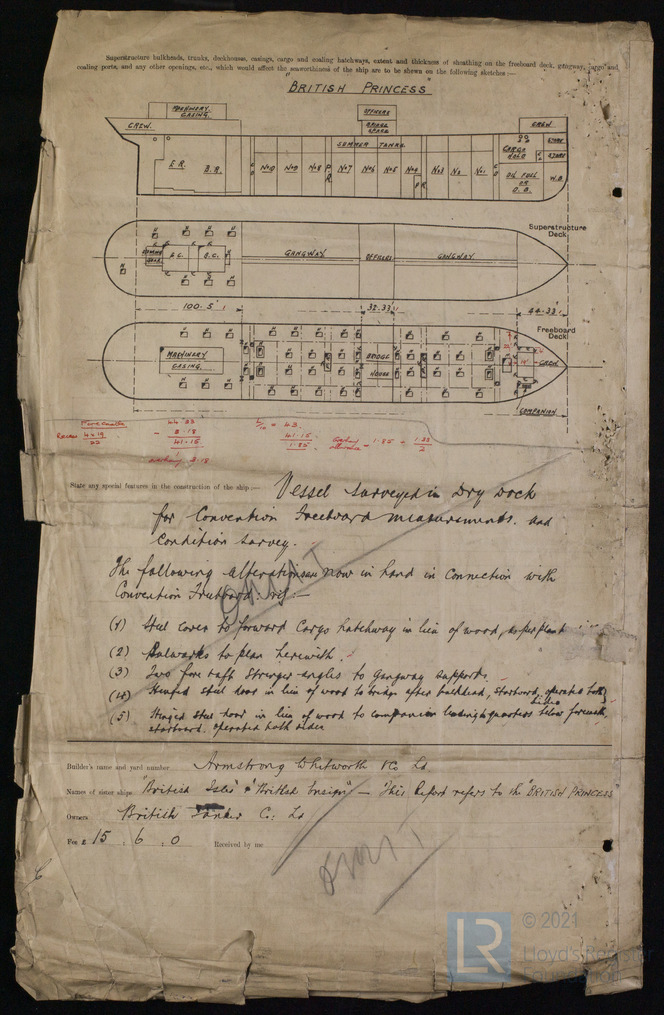 Superstructure bulkheads, trunks, deckhouses, casings, cargo and coaling hatchways, extent and thickness of sheathing on the freeboard deck, gangway, cargo and
coaling ports, and any other openings, etc., which would affect the seaworthiness of the ship are to be shewn on the following sketches :—
"BRITISH PRINCESS"
MACHINERY
CASING.
OFFICERS
BRIDGE
SPACE
CREW.
CREW
SUMMER TANKS.
CARGO
HOLD
STORE
STORE
E.R.
B.R.
No9
No8
P.R.
No7
No6
No5
No4
P.R.
No3
No2
No1
OIL FUEL
OR
W.B.
Superstructure
Deck
E.C.
B.C.
GANGWAY
OFFICERS
GANGWAY
100.5'
32.33'
44.33'
Freeboard
Deck
MACHINERY
CASING.
BRIDGE
HOUSE
CREW
COMPANION
Forecastle
44.33
3.18
41.15
L/10 = 43.
41.15
1.85
1.85
State any special features in the construction of the ship :—
Vessel surveyed in Dry Dock
for Convention Freeboard measurements. and
Condition Survey.
The following alterations are now in hand in connection with
Convention Freeboard: viz:—
(1) Steel cover to forward Cargo hatchway in lieu of wood, as per plan
(2) Bulwarks to plan herewith.
(3) Two fore & aft Stringer angles to gangway supports.
(4) Hinged steel door in lieu of wood to bridge after bulkhead, Starboard, operated both
sides
(5) Hinged steel door in lieu of wood to companion leading to quarters below forecastle,
starboard. operated both sides
OMIT
Builder's name and yard number Armstrong Whitworth & Co Ld
Names of sister ships "British Isles" & "British Ensign" — This Report refers to the "BRITISH PRINCESS"
Owners British Tanker Co: Ld
Fee £ 15 : 6 : 0 Received by me
OMIT
LR
© 2021
Lloyd's Register
Foundation